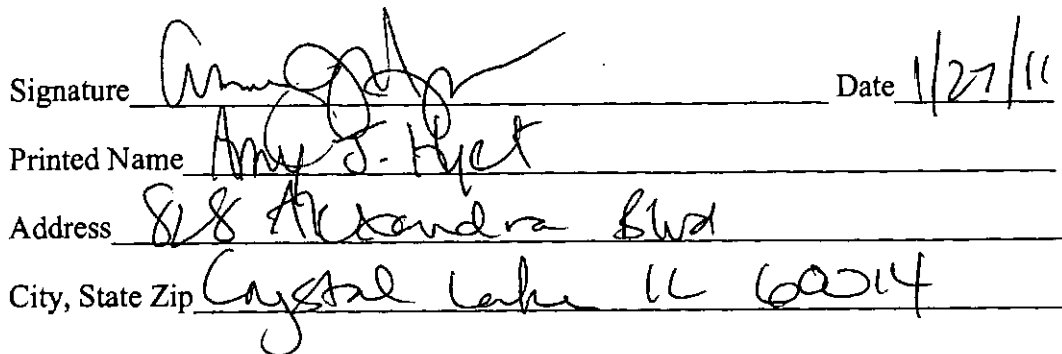 Signature Date 1/27/11
Printed Name Amy J. Hyct
Address 828 Alexandra Blvd
City, State Zip Crystal Lake IL 60014